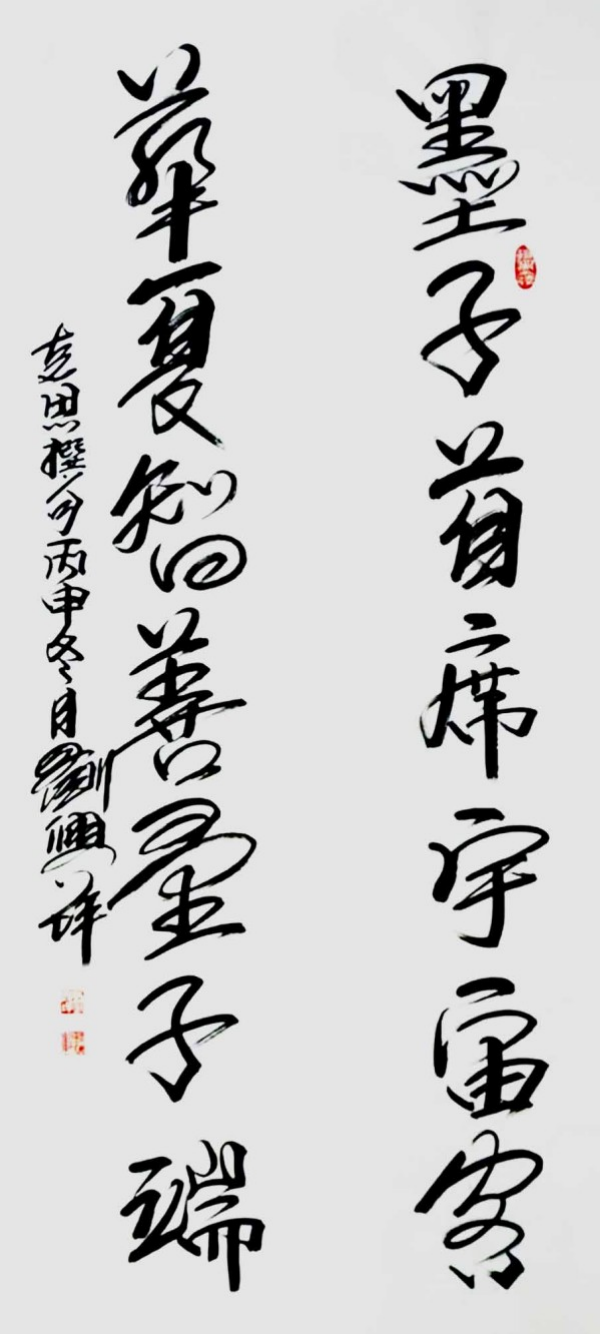 墨子首席宇宙客
華夏智善量子端
思撰句丙申冬月劉興祥